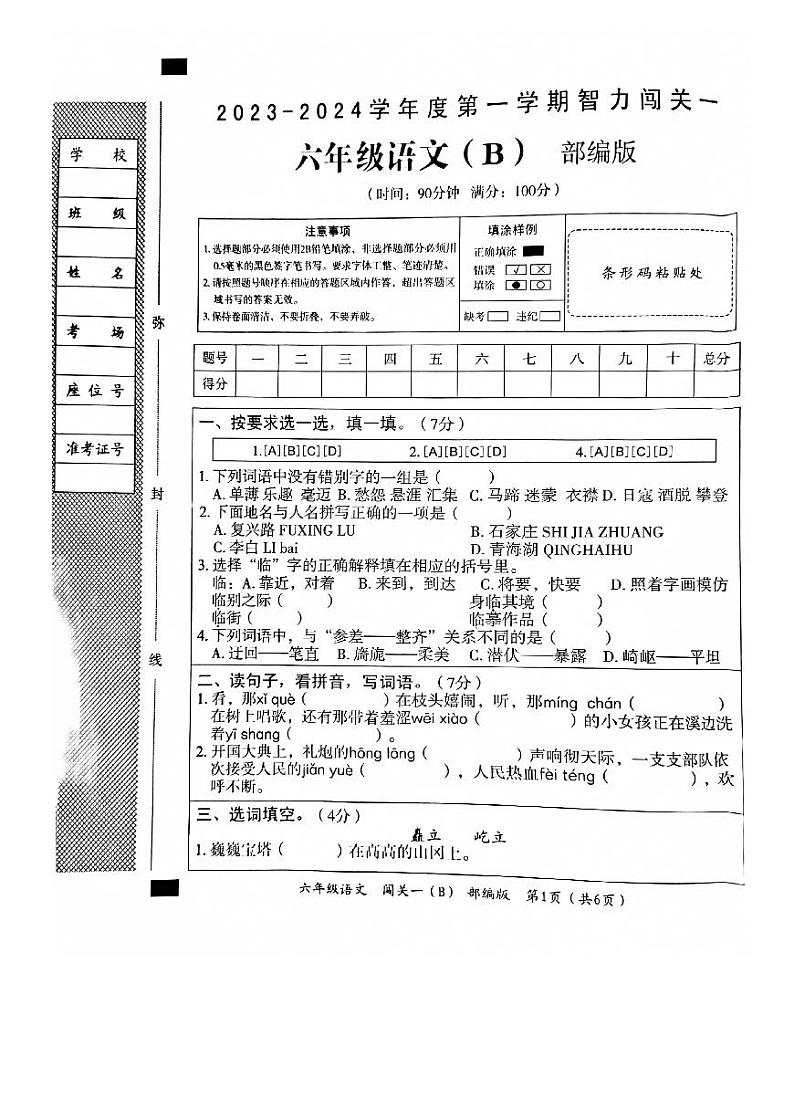 2023-2024学年度第一学期智力闯关一
六年级语文（B） 部编版
（时间：90分钟 满分：100分）
学 校
班 级
姓 名
考 场
座位号
准考证号
弥
封
线
注意事项
1.选择题部分必须使用2B铅笔填涂，非选择题部分必须用
0.5毫米的黑色签字笔书写。要求字体工整、笔迹清楚。
2.请按照题号顺序在相应的答题区域内作答，超出答题区
域书写的答案无效。
3.保持卷面清洁，不要折叠，不要弄破。
填涂样例
正确填涂
错误
填涂
缺考 违纪
条形码粘贴处
题号 一 二 三 四 五 六 七 八 九 十 总分
得分
一、按要求选一选，填一填。（7分）
1.[A][B][C][D] 2.[A][B][C][D] 4.[A][B][C][D]
1.下列词语中没有错别字的一组是（ ）
A.单薄 乐趣 毫迈 B.愁怨 悬涯 汇集 C.马蹄 迷蒙 衣襟 D.日寇 洒脱 攀登
2.下面地名与人名拼写正确的一项是（ ）
A.复兴路 FUXING LU B.石家庄 SHI JIA ZHUANG
C.李白 LI bai D.青海湖 QINGHAIHU
3.选择“临”字的正确解释填在相应的括号里。
临：A.靠近，对着 B.来到，到达 C.将要，快要 D.照着字画模仿
临别之际（ ） 身临其境（ ）
临街（ ） 临摹作品（ ）
4.下列词语中，与“参差——整齐”关系不同的是（ ）
A.迂回——笔直 B.旖旎——柔美 C.潜伏——暴露 D.崎岖——平坦
二、读句子，看拼音，写词语。（7分）
1.看，那xǐ què（ ）在枝头嬉闹，听，那míng chán（ ）
在树上唱歌，还有那带着羞涩wēi xiào（ ）的小女孩正在溪边洗
着yī shang（ ）。
2.开国大典上，礼炮的hōng lōng（ ）声响彻天际，一支支部队依
次接受人民的jiǎn yuè（ ），人民热血fèi téng（ ），欢
呼不断。
三、选词填空。（4分）
矗立 屹立
1.巍巍宝塔（ ）在高高的山冈上。
六年级语文 闯关一（B） 部编版 第1页（共6页）